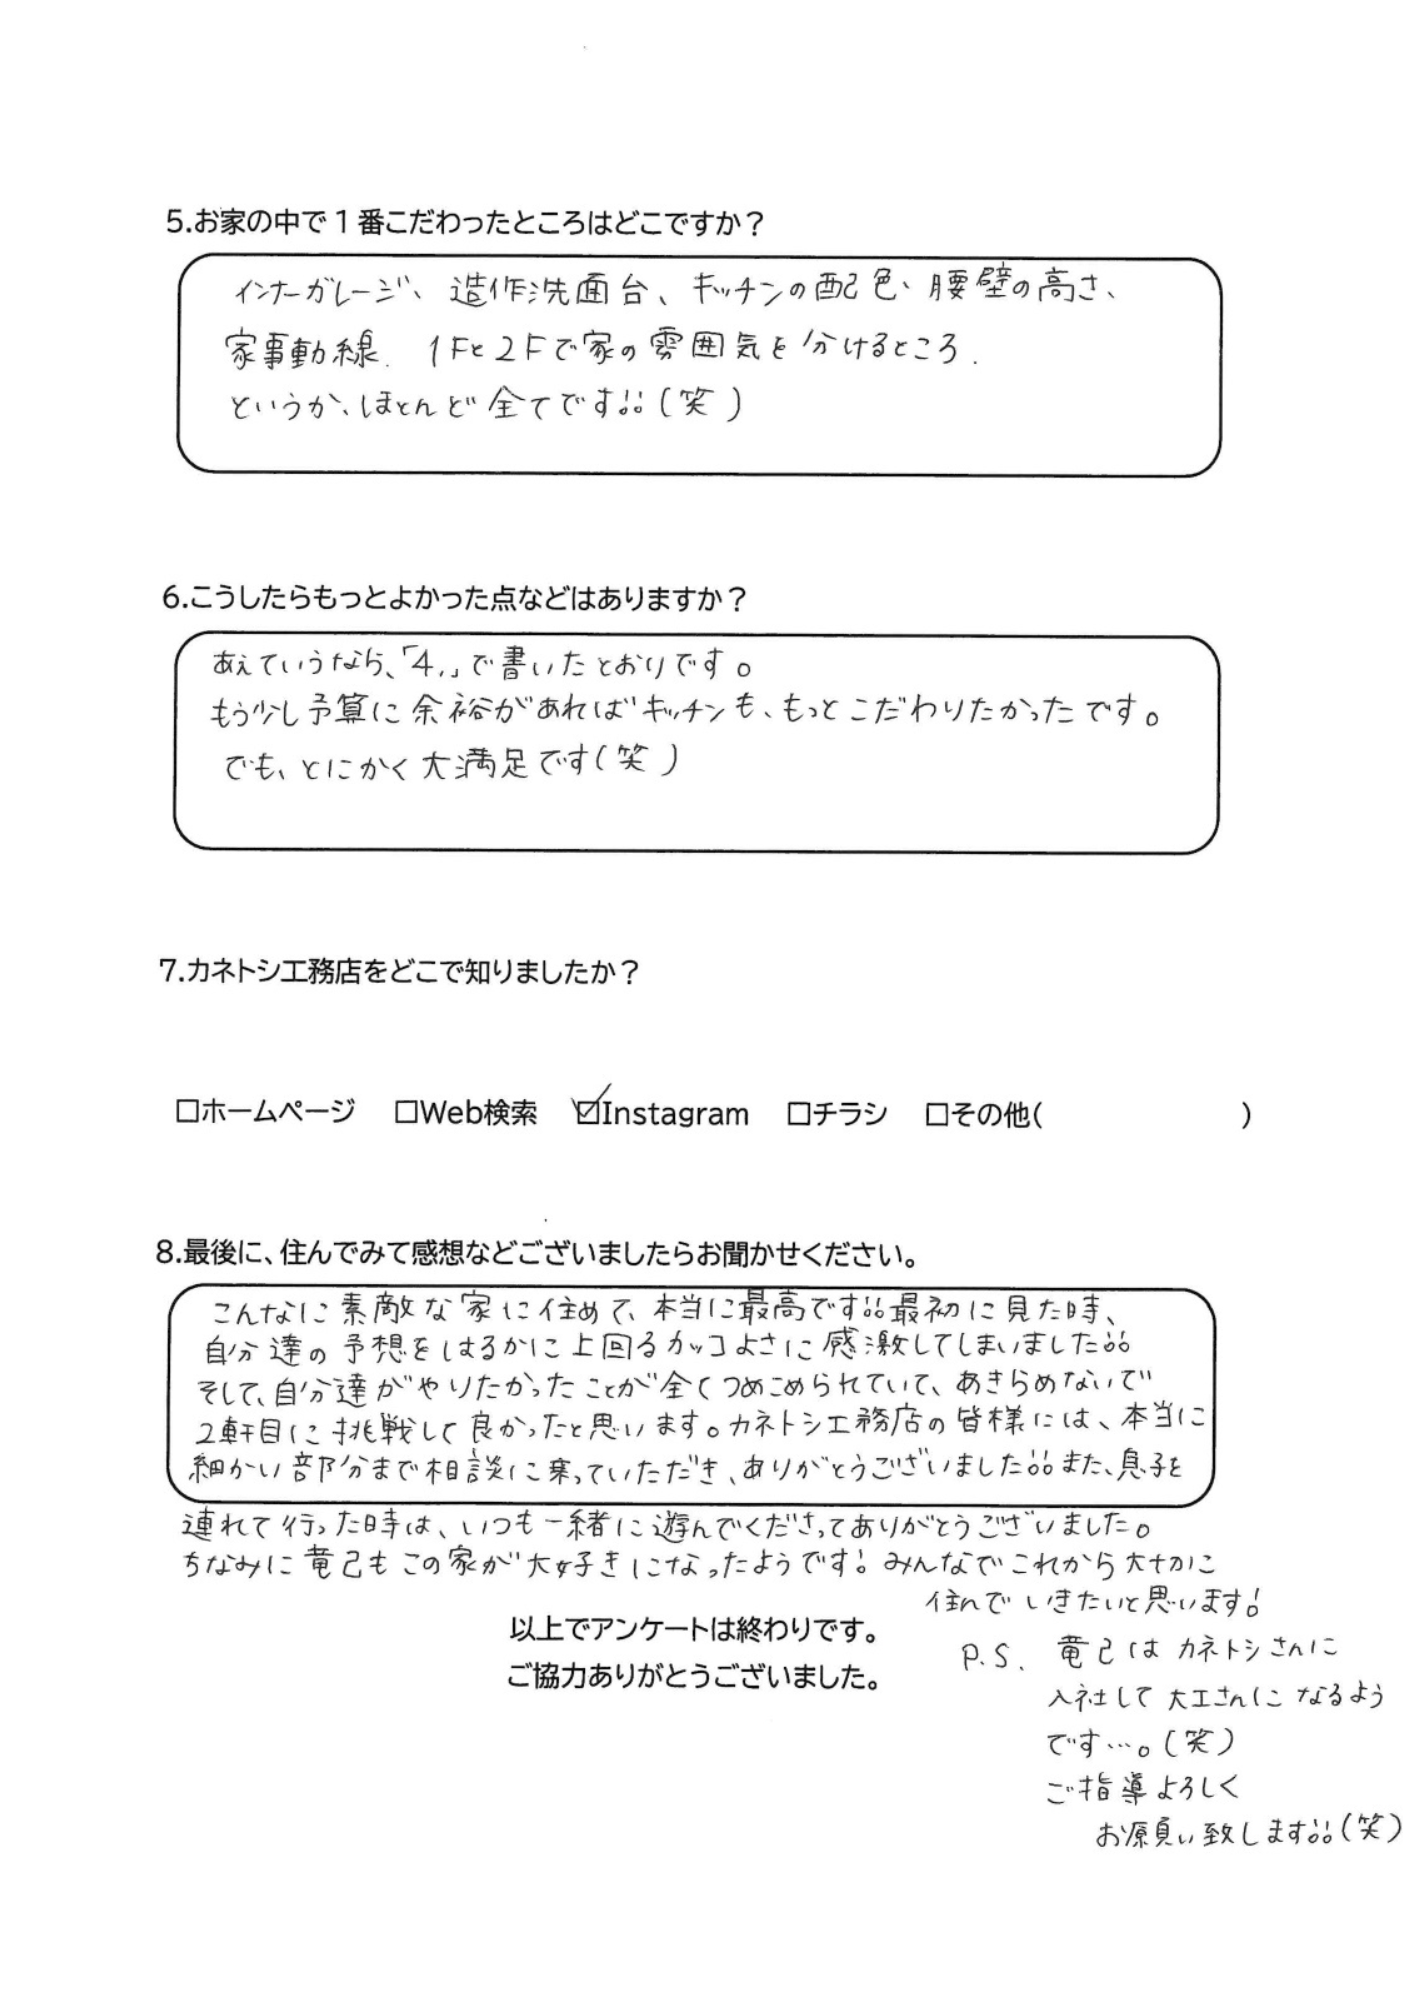 5.お家の中で1番こだわったところはどこですか？
インナーガレージ、造作洗面台、キッチンの配色、腰壁の高さ、
家事動線、1Fと2Fで家の雰囲気を分けるところ、
というか、ほとんど全てです!!(笑)
6.こうしたらもっとよかった点などはありますか？
あえていうなら、「4.」で書いたとおりです。
もう少し予算に余裕があればキッチンも、もっとこだわりたかったです。
でも、とにかく大満足です(笑)
7.カネトシ工務店をどこで知りましたか？
□ホームページ □Web検索 ☑Instagram □チラシ □その他( )
8.最後に、住んでみて感想などございましたらお聞かせください。
こんなに素敵な家に住めて、本当に最高です!!最初に見た時、
自分達の予想をはるかに上回るカッコよさに感激してしまいました!!
そして、自分達がやりたかったことが全てつめこめられていて、あきらめないで
2軒目に挑戦して良かったと思います。カネトシ工務店の皆様には、本当に
細かい部分まで相談に乗っていただき、ありがとうございました!!また、息子を
連れて行った時は、いつも一緒に遊んでくださってありがとうございました。
ちなみに竜己もこの家が大好きになったようです!みんなでこれから大切に
住んでいきたいと思います!
以上でアンケートは終わりです。
ご協力ありがとうございました。
P.S. 竜己はカネトシさんに
入社して大工さんになるよう
です…。(笑)
ご指導よろしく
お願い致します!!(笑)